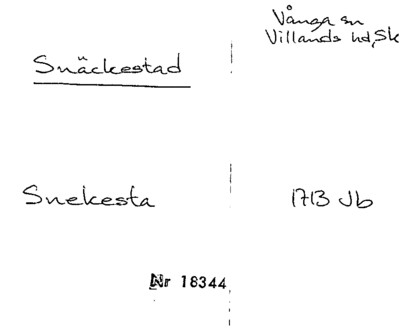 Vånga sn
Villands hd, Sk
Snäckestad
Snekesta
1713 Jb
Nr 18344